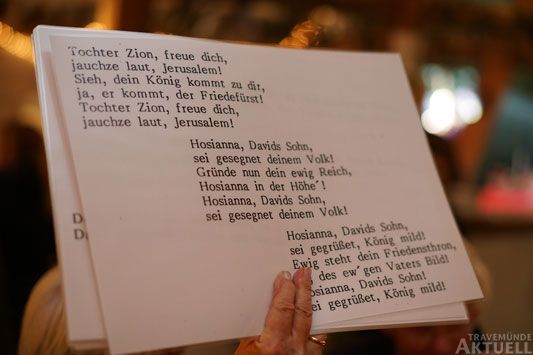 Tochter Zion, freue dich,
jauchze laut, Jerusalem!
Sieh, dein König kommt zu dir,
ja, er kommt, der Friedefürst!
Tochter Zion, freue dich,
jauchze laut, Jerusalem!
Hosianna, Davids Sohn,
sei gesegnet deinem Volk!
Gründe nun dein ewig Reich,
Hosianna in der Höhe´!
Hosianna, Davids Sohn,
sei gesegnet deinem Volk!
Hosianna, Davids Sohn,
sei gegrüßet, König mild!
Ewig steht dein Friedensthron,
des ew´gen Vaters Bild!
Hosianna, Davids Sohn!
sei gegrüßet, König mild!
TRAVEMÜNDE
AKTUELL